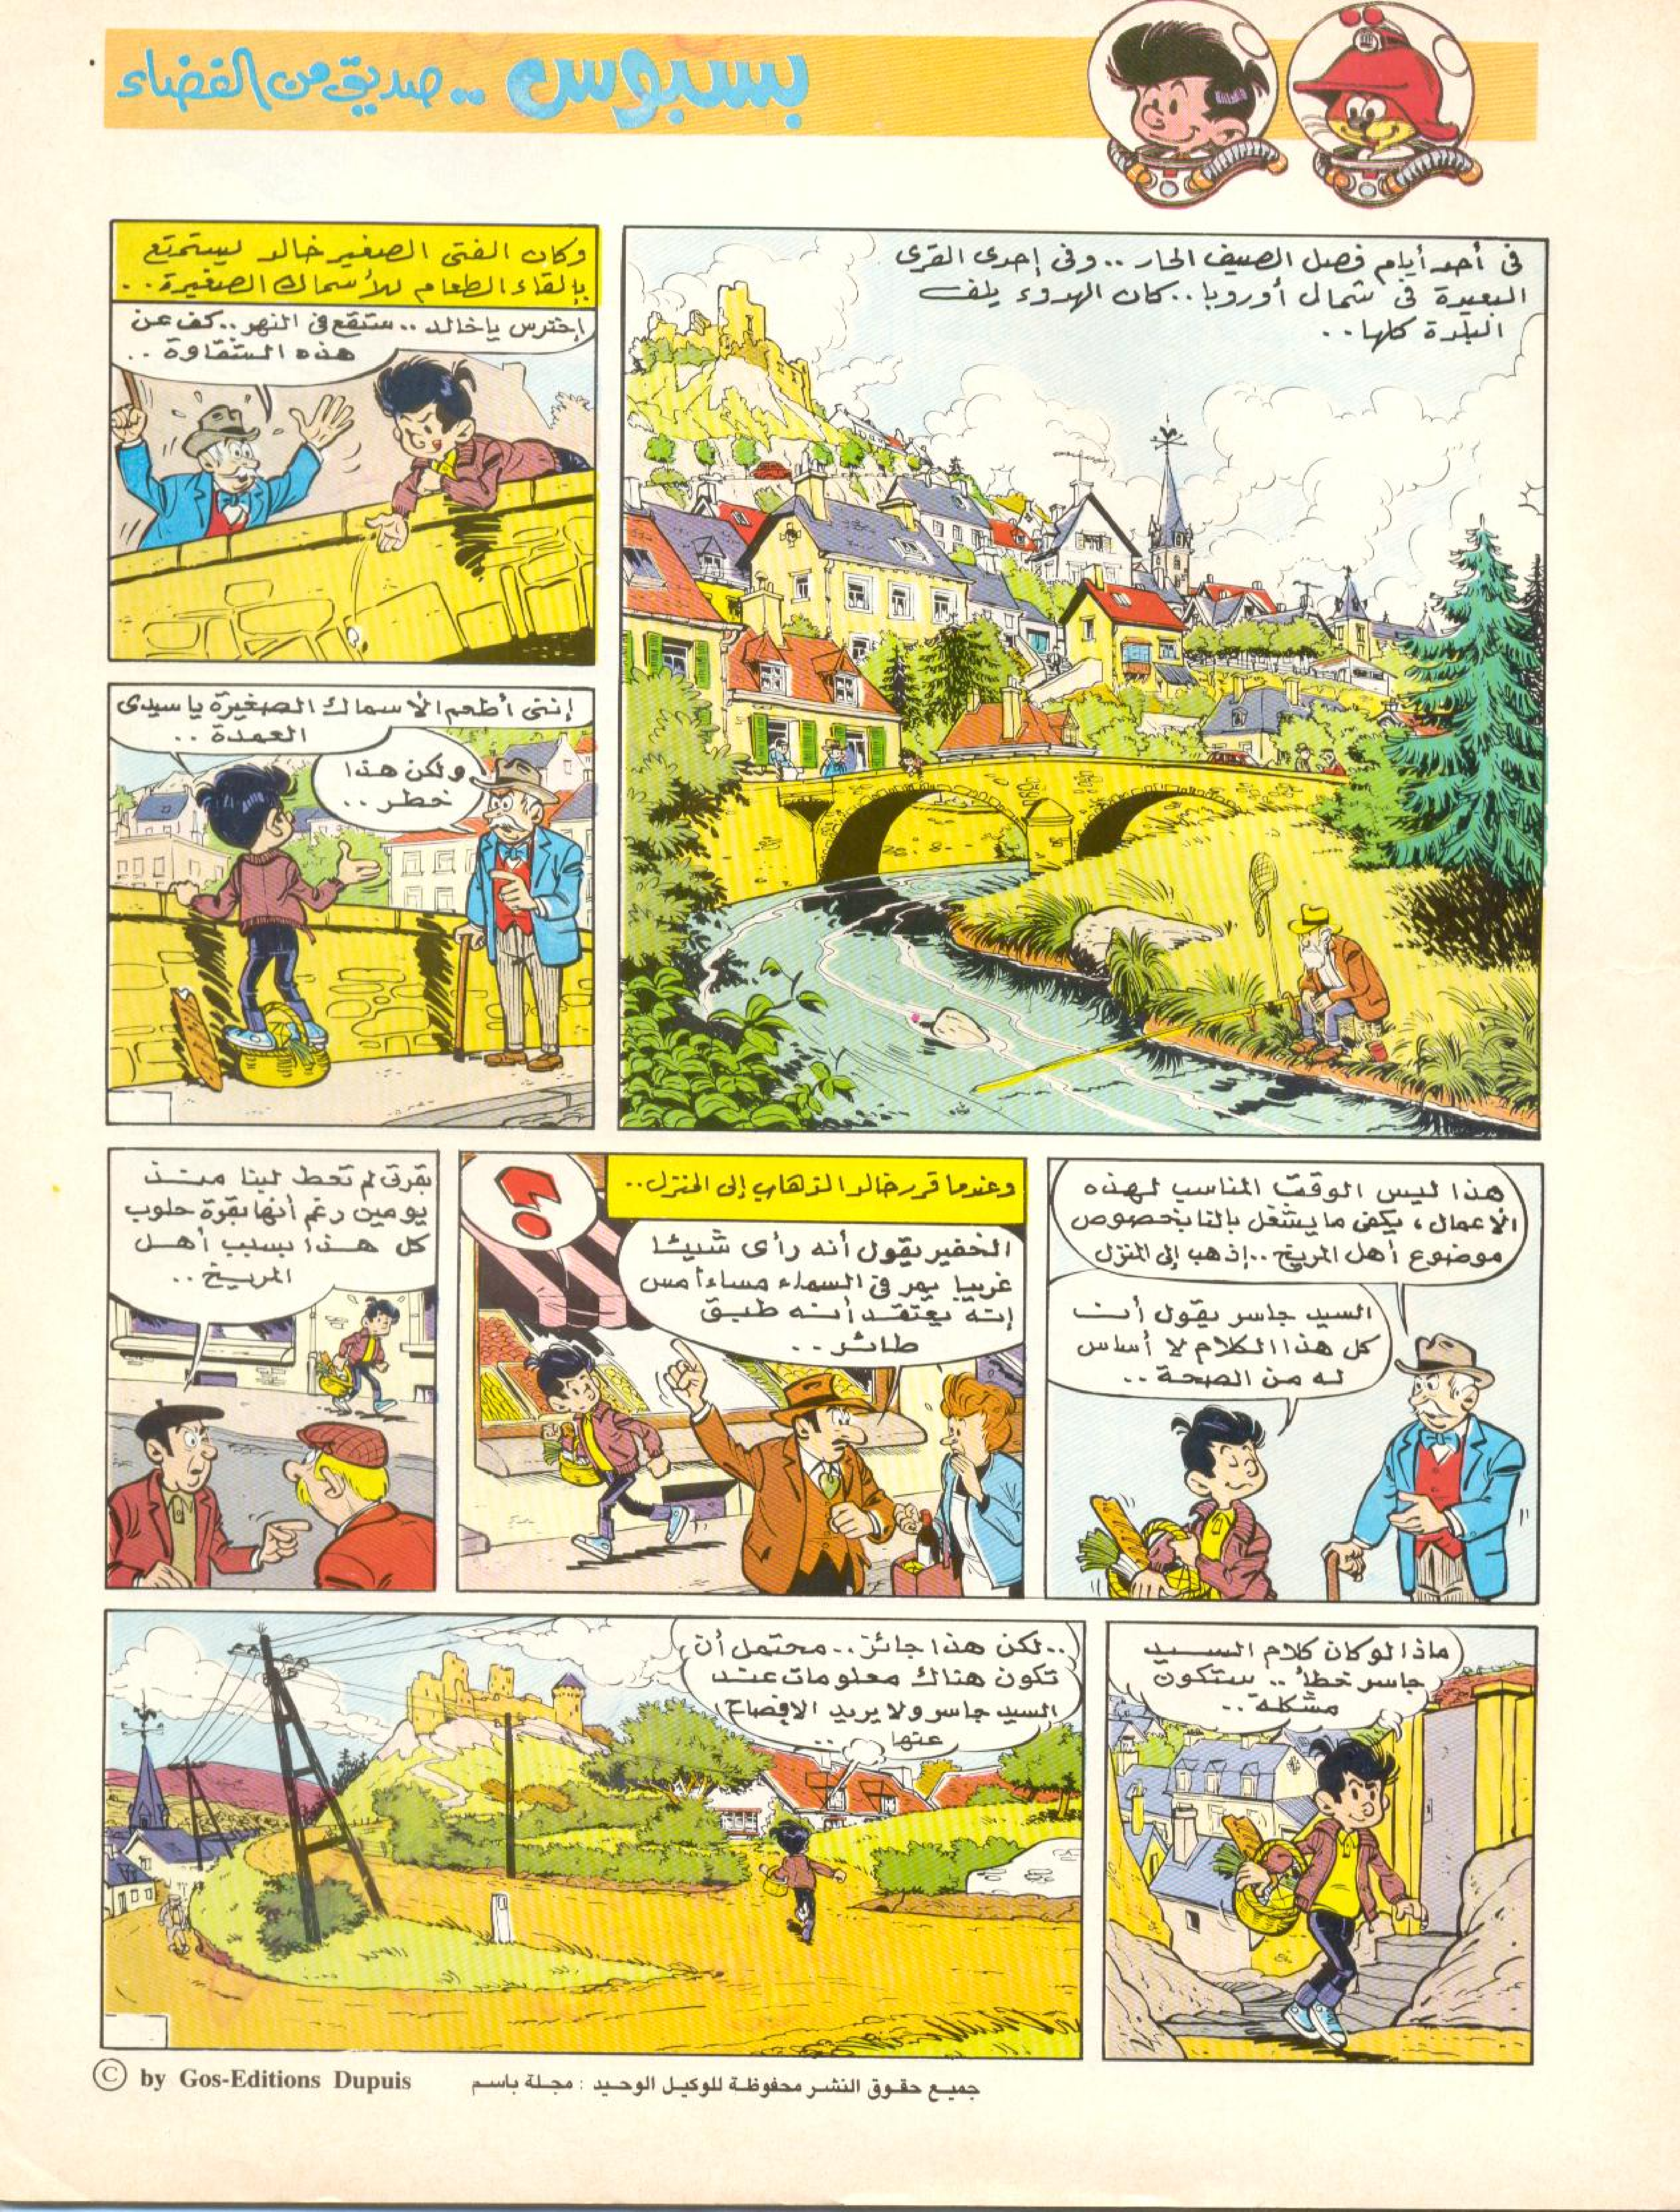 بسبوس .. صديق من الفضاء
في أحد أيام فصل الصيف الحار .. وفي إحدى القرى
البعيدة في شمال أوروبا .. كان الهدوء يلف
البلدة كلها ..
وكان الفتى الصغير خالد يستمتع
بإلقاء الطعام للأسماك الصغيرة ..
إحترس ياخالد .. ستقع في النهر .. كف عن
هذه الشقاوة ..
إننى أطعم الأسماك الصغيرة ياسيدى
العمدة ..
ولكن هذا
خطر ..
هذا ليس الوقت المناسب لهذه
الأعمال ، يكفى ما يشغل بالنا بخصوص
موضوع أهل المريخ .. إذهب إلى المنزل
السيد جاسر يقول أن
كل هذا الكلام لا أساس
له من الصحة ..
وعندما قرر خالد الذهاب إلى المنزل ..
الخفير يقول أنه رأى شيئا
غريبا يمر في السماء مساء أمس
إنه يعتقد أنه طبق
طائر ..
?
بقرتى لم تعط لبنا منذ
يومين رغم أنها بقرة حلوب
كل هذا بسبب أهل
المريخ ..
ماذا لو كان كلام السيد
جاسر خطأ .. ستكون
مشكلة ..
.. لكن هذا جائز .. محتمل أن
تكون هناك معلومات عند
السيد جاسر ولا يريد الإفصاح
عنها ..
© by Gos-Editions Dupuis
جميع حقوق النشر محفوظة للوكيل الوحيد : مجلة باسم